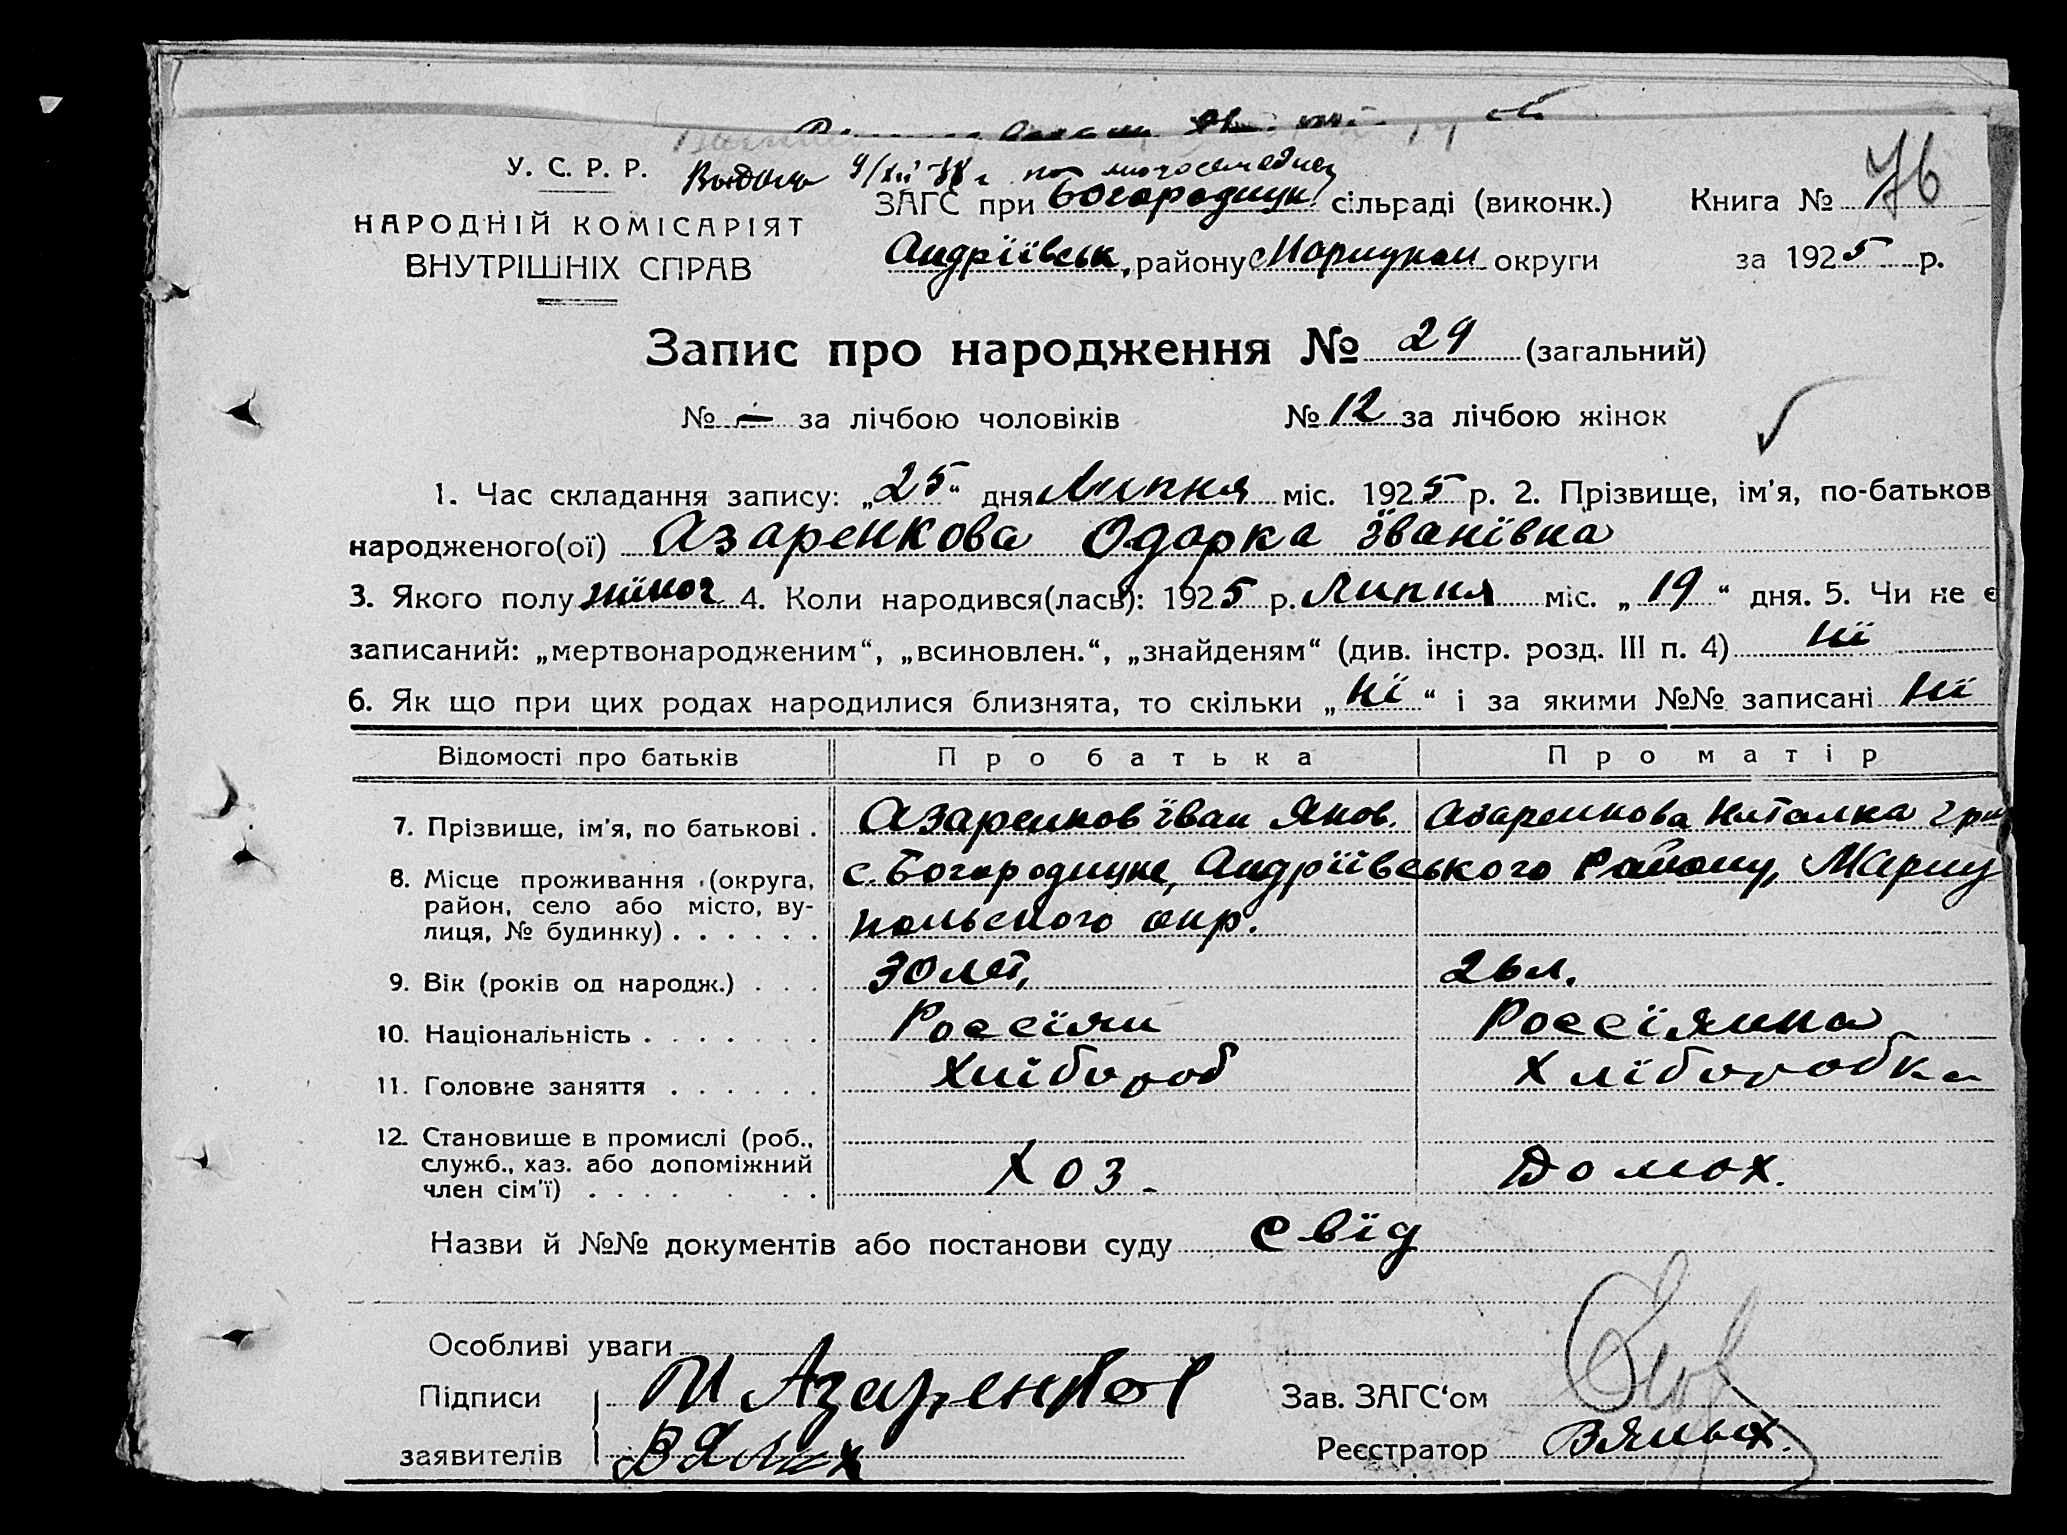 У. С. Р. Р.
Выдано 9/XII-38 г. по
ЗАГС при Богородицк. сільраді (виконк.) Книга № 76
НАРОДНІЙ КОМІСАРІЯТ
ВНУТРІШНІХ СПРАВ
Андріївськ, району округи за 1925 р.
Запис про народження № 29 (загальний)
№ - за лічбою чоловіків № 12 за лічбою жінок
1. Час складання запису: „25“ дня Липня міс. 1925 р. 2. Прізвище, ім'я, по-батьков
народженого(ої) Азаренкова Одарка Іванівна
3. Якого полу жіноч 4. Коли народився(лась): 1925 р. Липня міс. „19“ дня. 5. Чи не є
записаний: „мертвонародженим“, „всиновлен.“, „знайденям“ (див. інстр. розд. III п. 4) Ні
6. Як що при цих родах народилися близнята, то скільки „Ні“ і за якими №№ записані Ні
Відомості про батьків Про батька Про матір
7. Прізвище, ім'я, по батькові . Азаренков Іван Яков. Азаренкова Наталка Гри
8. Місце проживання (округа, с. Богородицке, Андріївського Району, Мариу
район, село або місто, ву-
лиця, № будинку) . . . . . . польского окр.
9. Вік (років од народж.) . . . 30 лет, 26 л.
10. Національність . . . . . . . Россіян Россіянка
11. Головне заняття . . . . . . Хлібороб Хліборобка
12. Становище в промислі (роб.,
служб., хаз. або допоміжний Хоз. Домох.
член сім'ї) . . . . . . . .
Назви й №№ документів або постанови суду свід
Особливі уваги
Підписи И Азаренков Зав. ЗАГС'ом
заявителів Реєстратор